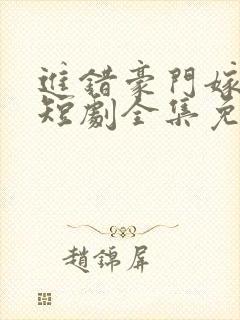 進錯豪門嫁
短劇全集免
趙錦屏